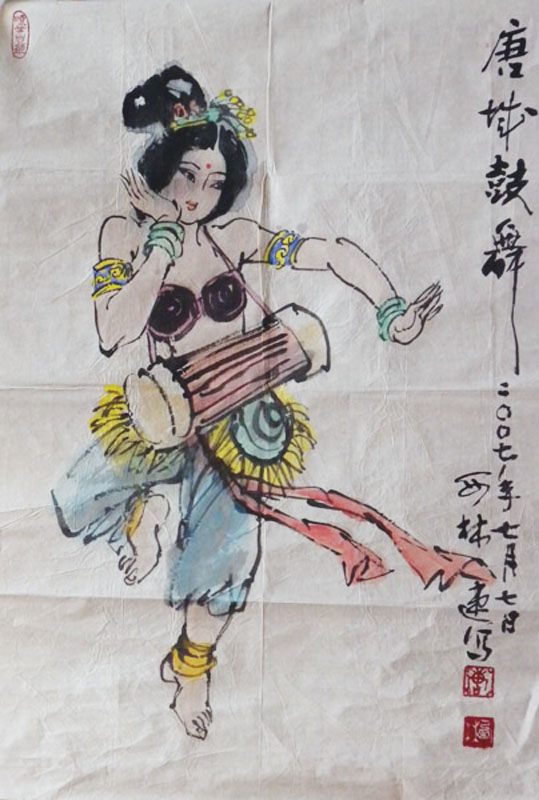 唐城鼓舞
二〇〇七年七月七日
西林速写